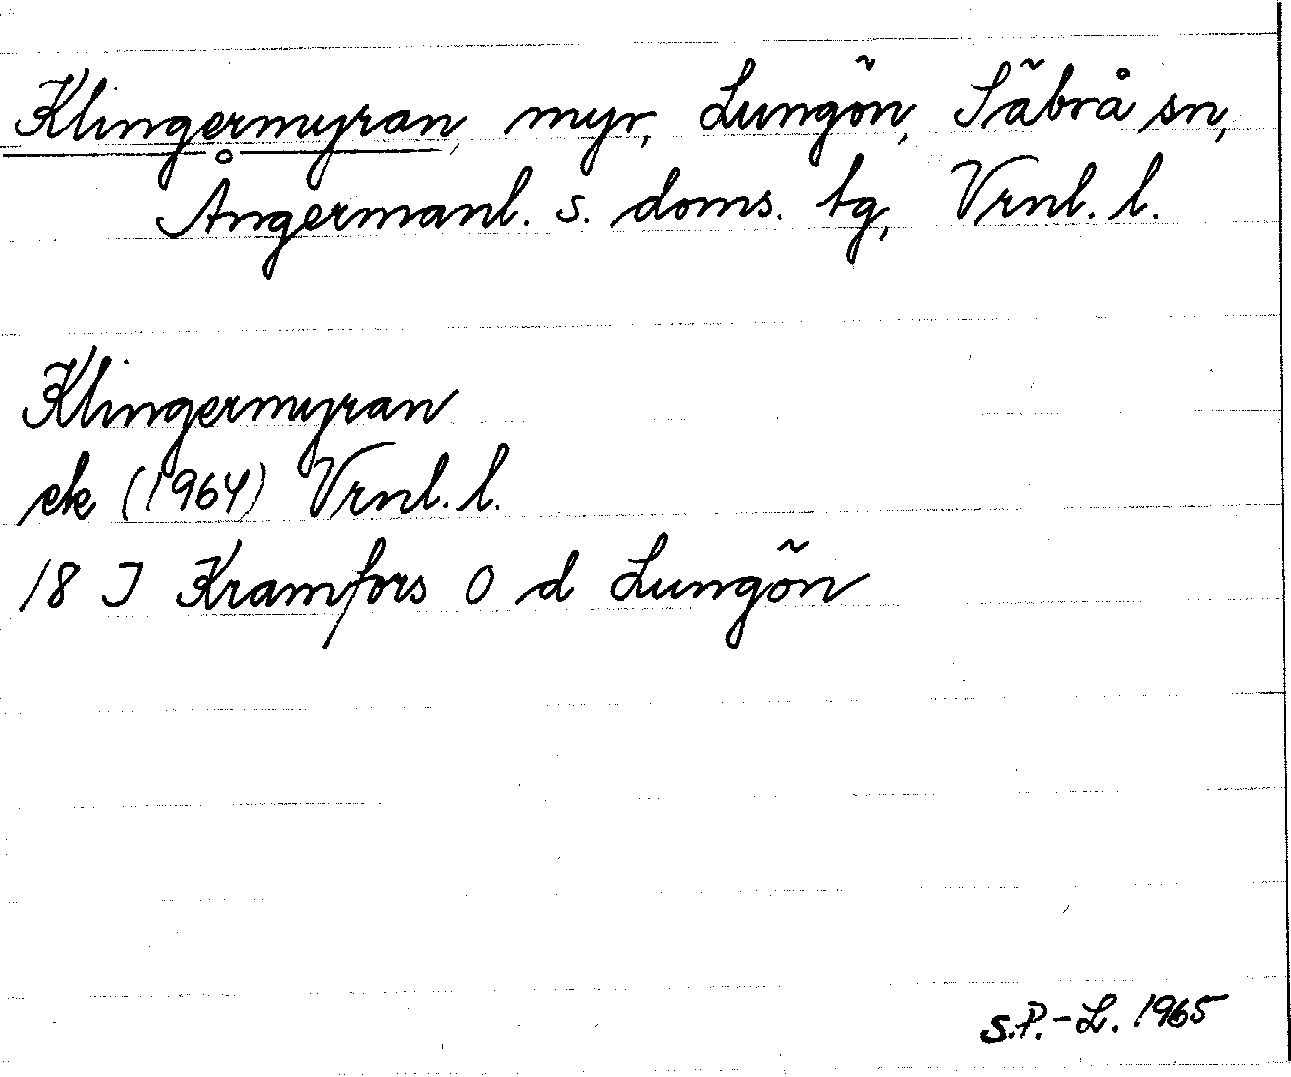 Klingermyran, myr, Lungön, Säbrå sn,
Ångermanl. s. doms. tg, Vrnl. l.
Klingermyran
ek (1964) Vrnl. l.
18 I Kramfors O d Lungön
S.P.-L. 1965